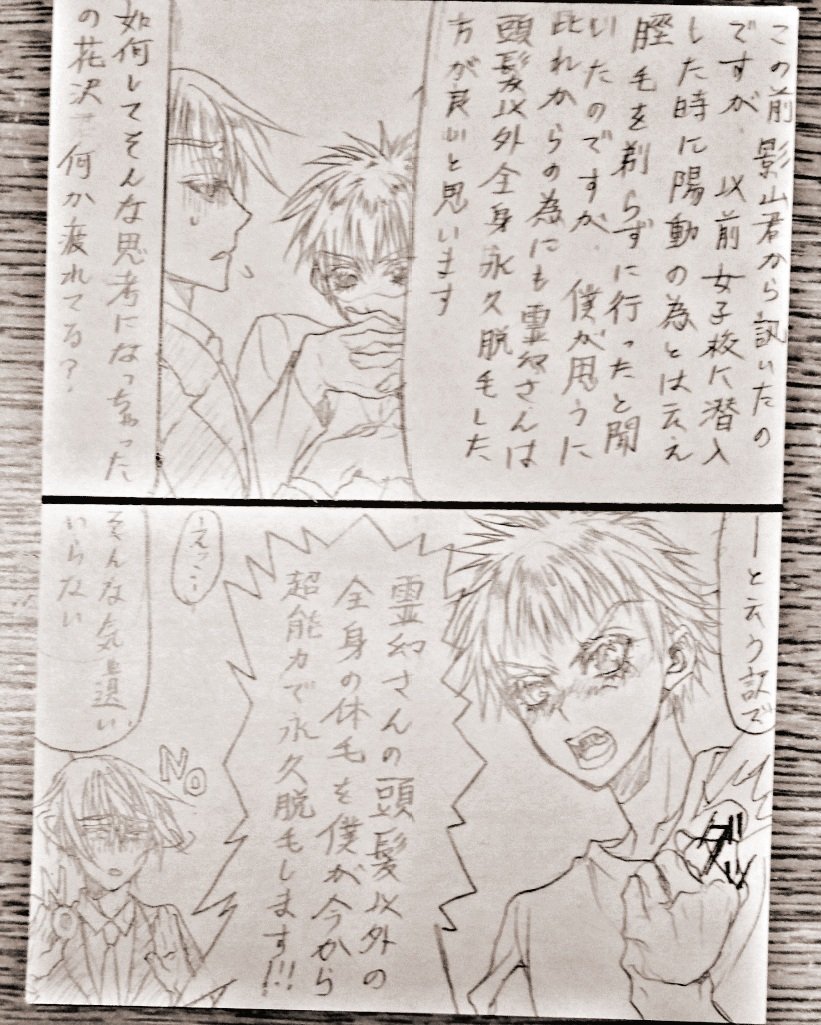 この前影山君から訊いたの
ですが、以前女子校に潜入
した時に陽動の為とは云え
脛毛を剃らずに行ったと聞
いたのですが、僕が思うに
此れからの為にも霊幻さんは
頭髪以外全身永久脱毛した
方が良いと思います
如何してそんな思考になっちゃった
の花沢君何か疲れてる？
ーと云う訳で
ダッ
霊幻さんの頭髪以外の
全身の体毛を僕が今から
超能力で永久脱毛します!!!
えっ…
そんな気遣い
いらない
NO